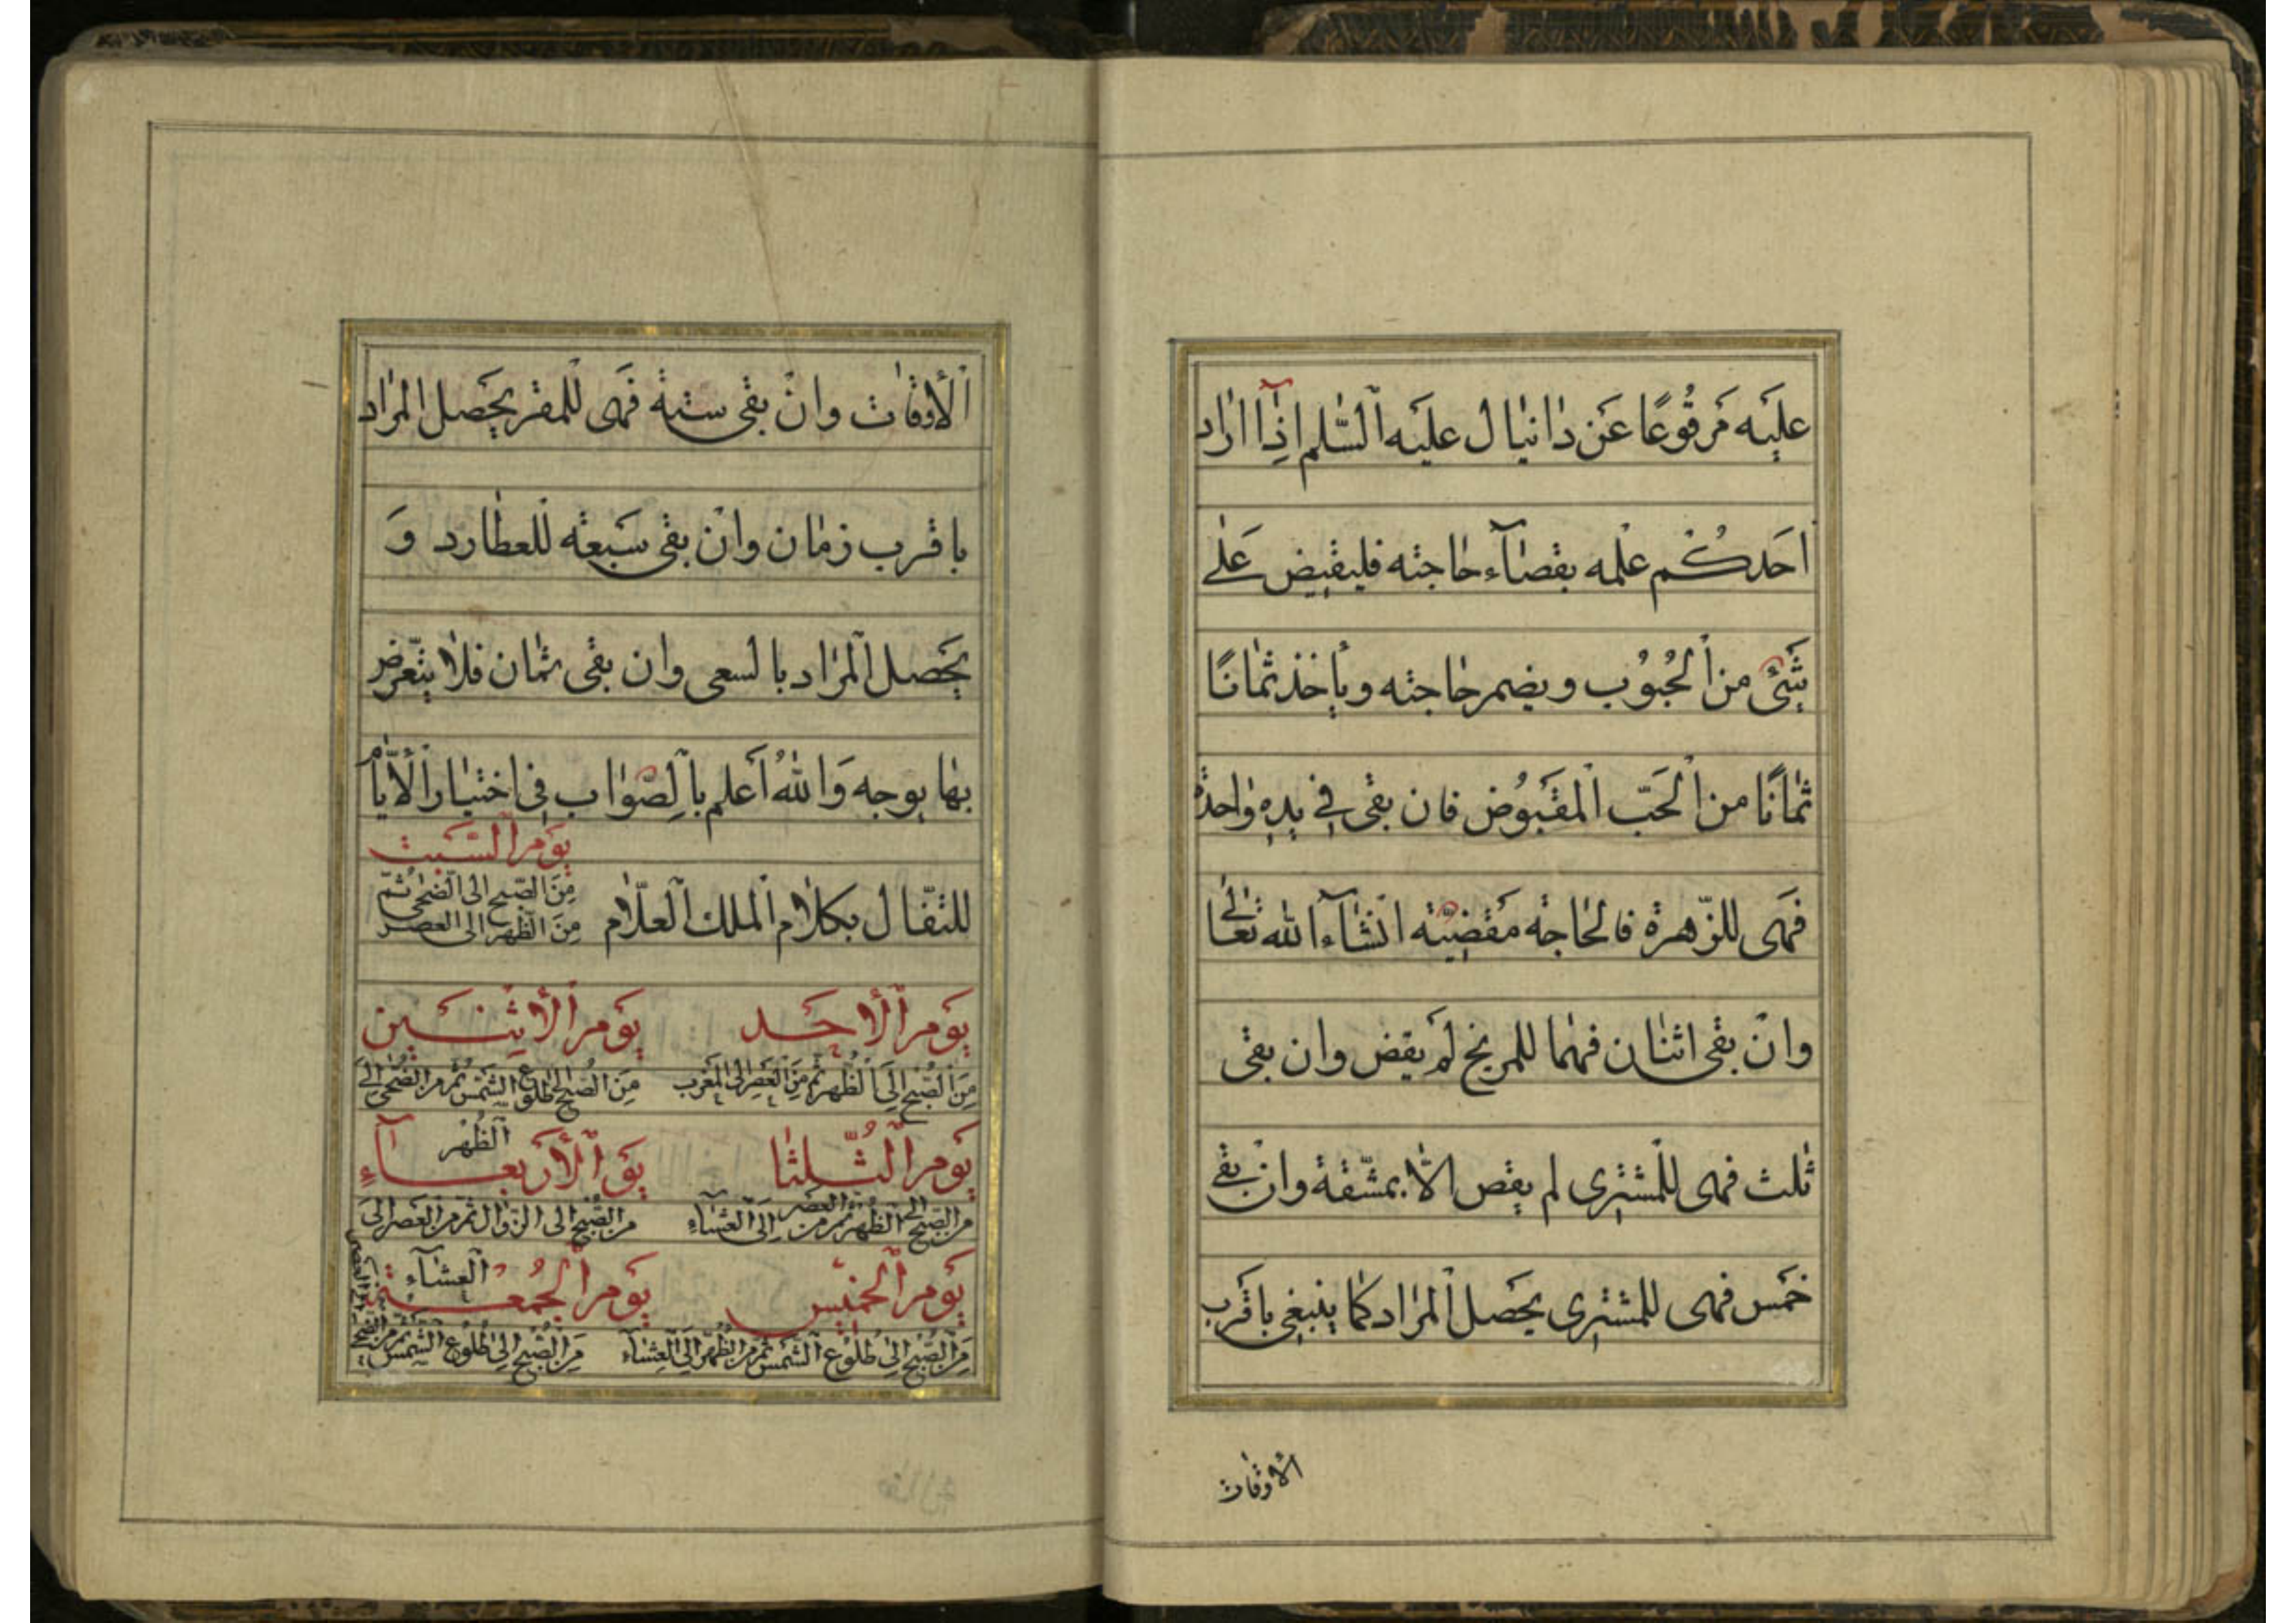 عليه مرقوعًا عن دانيال عليه السلم اذا اراد
احدكم علمه بقضآء حاجته فليقبض على
شئ من الحبوب ويضمر حاجته ويأخذ ثمانًا
ثمانًا من الحبّ المقبوض فان بقى في يده واحدة
فهى للزّهرة فالحاجة مقضيّة انشآء الله تعالى
وان بقى اثنان فهما للمريخ لم يقض وان بقى
ثلث فهى للمشترى لم يقض الّا بمشّقة وان بقى
خمس فهى للمشترى يحصل المراد كما ينبغى باقرب
الاوقات
الأوقات وان بقى ستة فهى للمقر يحصل المراد
باقرب زمان وان بقى سبعة للعطارد و
يحصل المراد بالسعى وان بقى ثمان فلا يتّعرض
بها بوجه والله أعلم بالصّواب فى اختيار الأيّام
للتفّال بكلام الملك العلّام
يوم السّبت
من الصّبح الى الضحى ثمّ
من الظهر الى العصر
يوم الأحد
من الصّبح الى الظهر ثم من العصر الى المغرب
يوم الأثنين
من الصّبح الى طلوع الشمس ثم من الضّحى الى
الظهر
يوم الثّلثا
من الصّبح الى الظهر ثم من العصر الى العشآء
يو الأربعآء
من الصّبح الى الزّوال ثم من العصر الى
العشآء
يوم الخميس
من الصّبح الى طلوع الشّمس ثم من الظّهر الى العشآء
يوم الجمعة
من الصّبح الى طلوع الشّمس ثم من الضحى
الى العصر